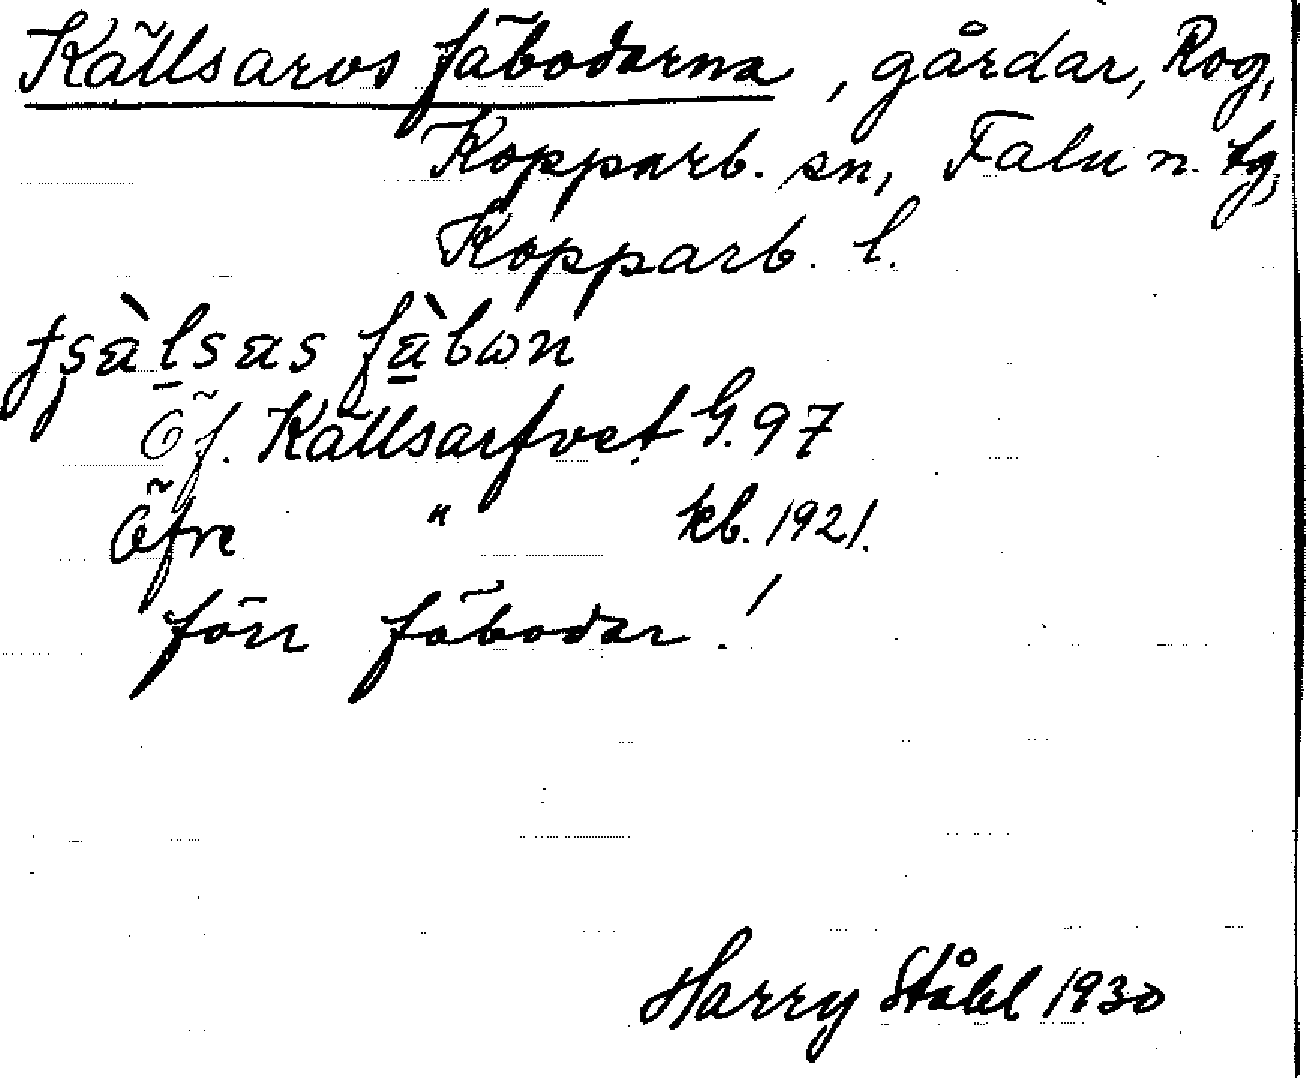 Källsarvs fäbodarna, gårdar, Rog,
Kopparb. sn, Falu n. tg,
Kopparb. l.
fäbon
Öf. Källsarfvet G. 97
Öfre " kb. 1921.
förr fäbodar!
Harry Ståhl 1930